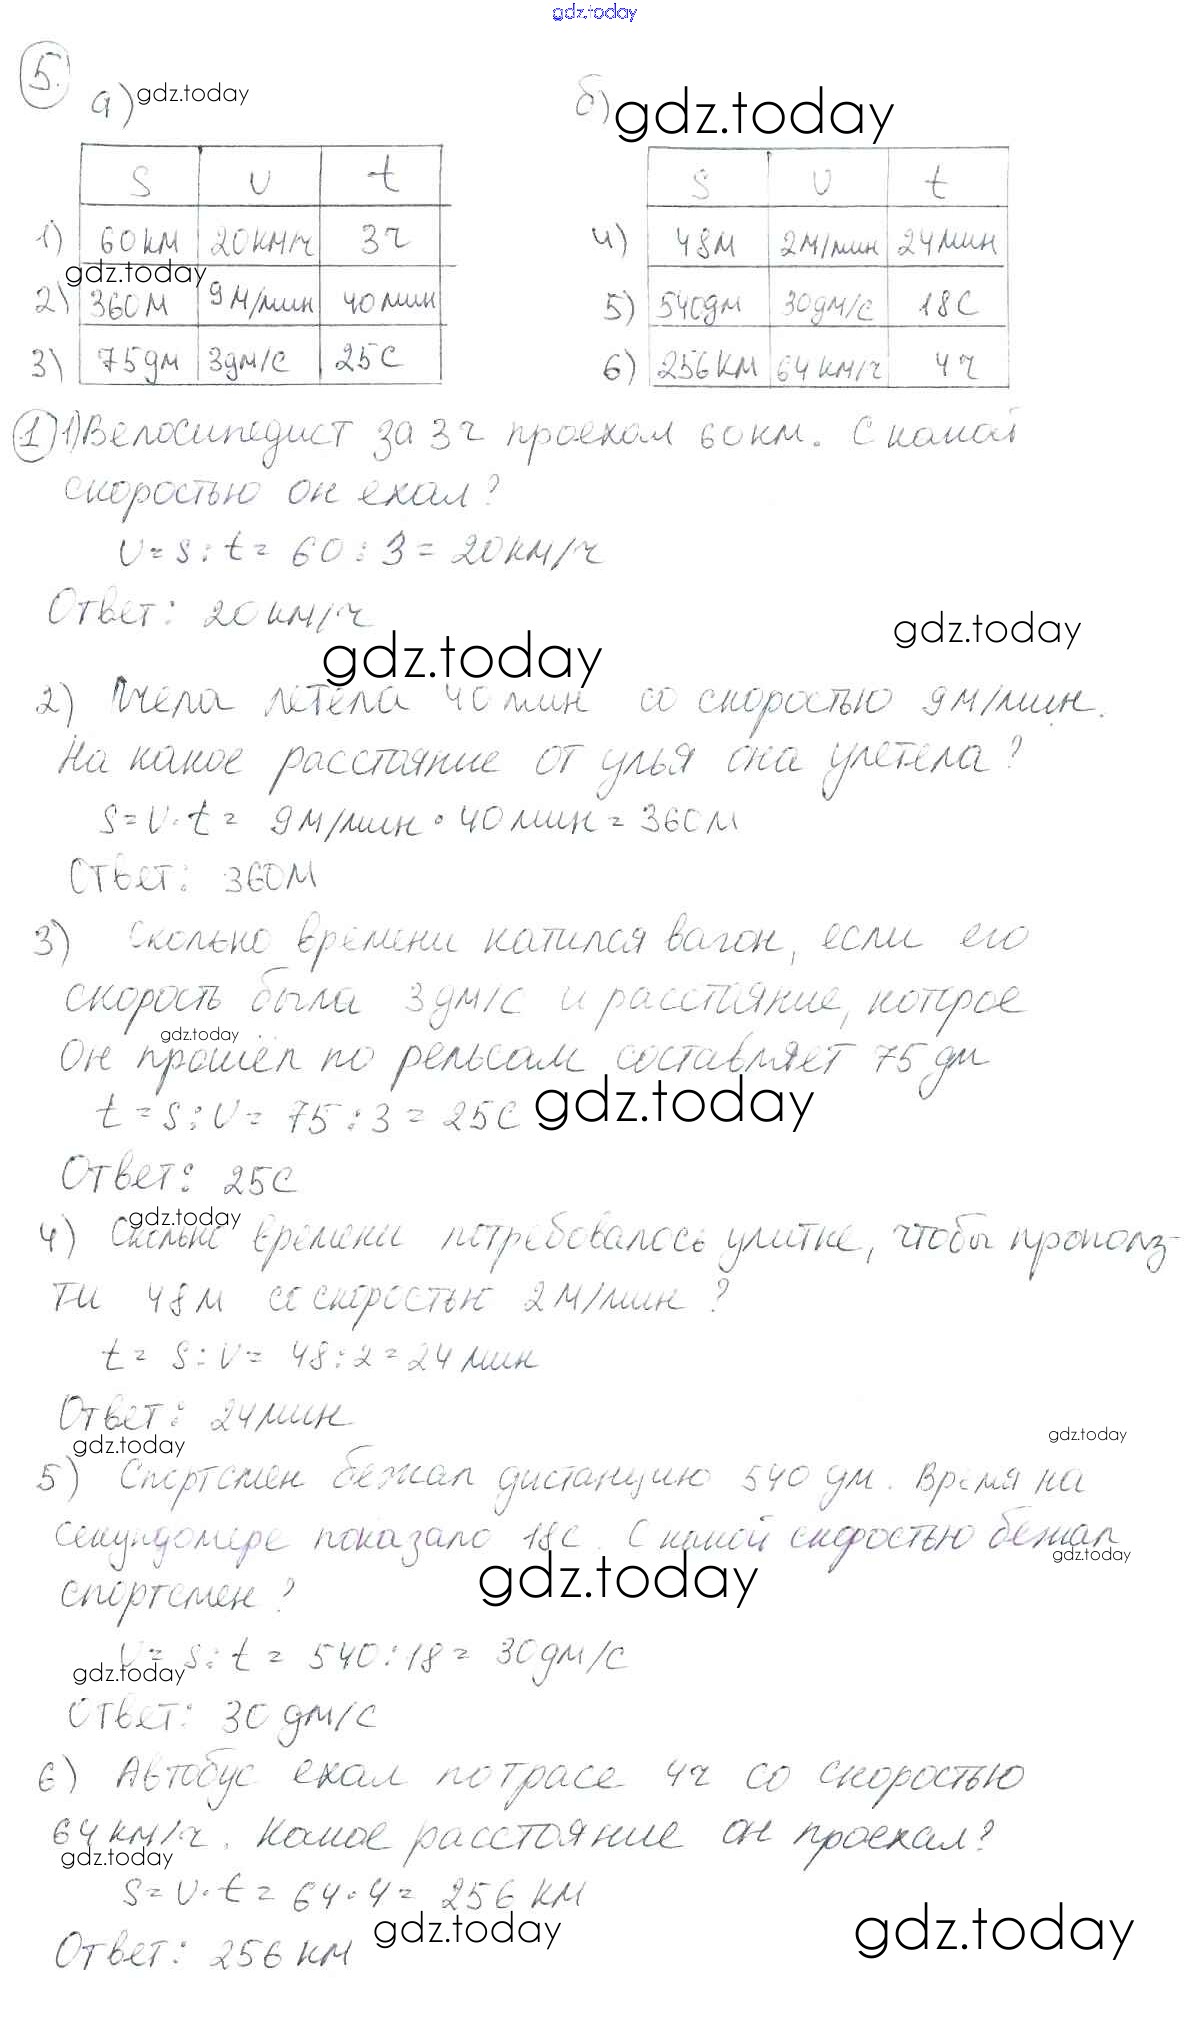 gdz.today
5.
а) gdz.today
б) gdz.today
S υ t
1) 60км 20км/ч 3ч
gdz.today
2) 360м 9м/мин 40мин
3) 75дм 3дм/с 25с
S υ t
4) 48м 2м/мин 24мин
5) 540дм 30дм/с 18с
6) 256км 64км/ч 4ч
1) 1) Велосипедист за 3ч проехал 60км. С какой
скоростью он ехал?
υ = s : t = 60 : 3 = 20км/ч
Ответ: 20км/ч
gdz.today
gdz.today
2) Пчела летела 40мин со скоростью 9м/мин.
На какое расстояние от улья она улетела?
s = υ · t = 9м/мин · 40мин = 360м
Ответ: 360м
3) Сколько времени катился вагон, если его
скорость была 3дм/с и расстояние, которое
gdz.today
Он прошёл по рельсам составляет 75дм
t = s : υ = 75 : 3 = 25с gdz.today
Ответ: 25с
gdz.today
4) Сколько времени потребовалось улитке, чтобы прополз-
ти 48м со скоростью 2м/мин?
t = s : υ = 48 : 2 = 24мин
Ответ: 24мин
gdz.today
gdz.today
5) Спортсмен бежал дистанцию 540дм. Время на
секундомере показало 18с. С какой скоростью бежал
gdz.today
gdz.today
спортсмен?
υ = s : t = 540 : 18 = 30дм/с
gdz.today
Ответ: 30дм/с
6) Автобус ехал по трасе 4ч со скоростью
64км/ч. Какое расстояние он проехал?
gdz.today
s = υ · t = 64 · 4 = 256км
gdz.today
gdz.today
Ответ: 256км